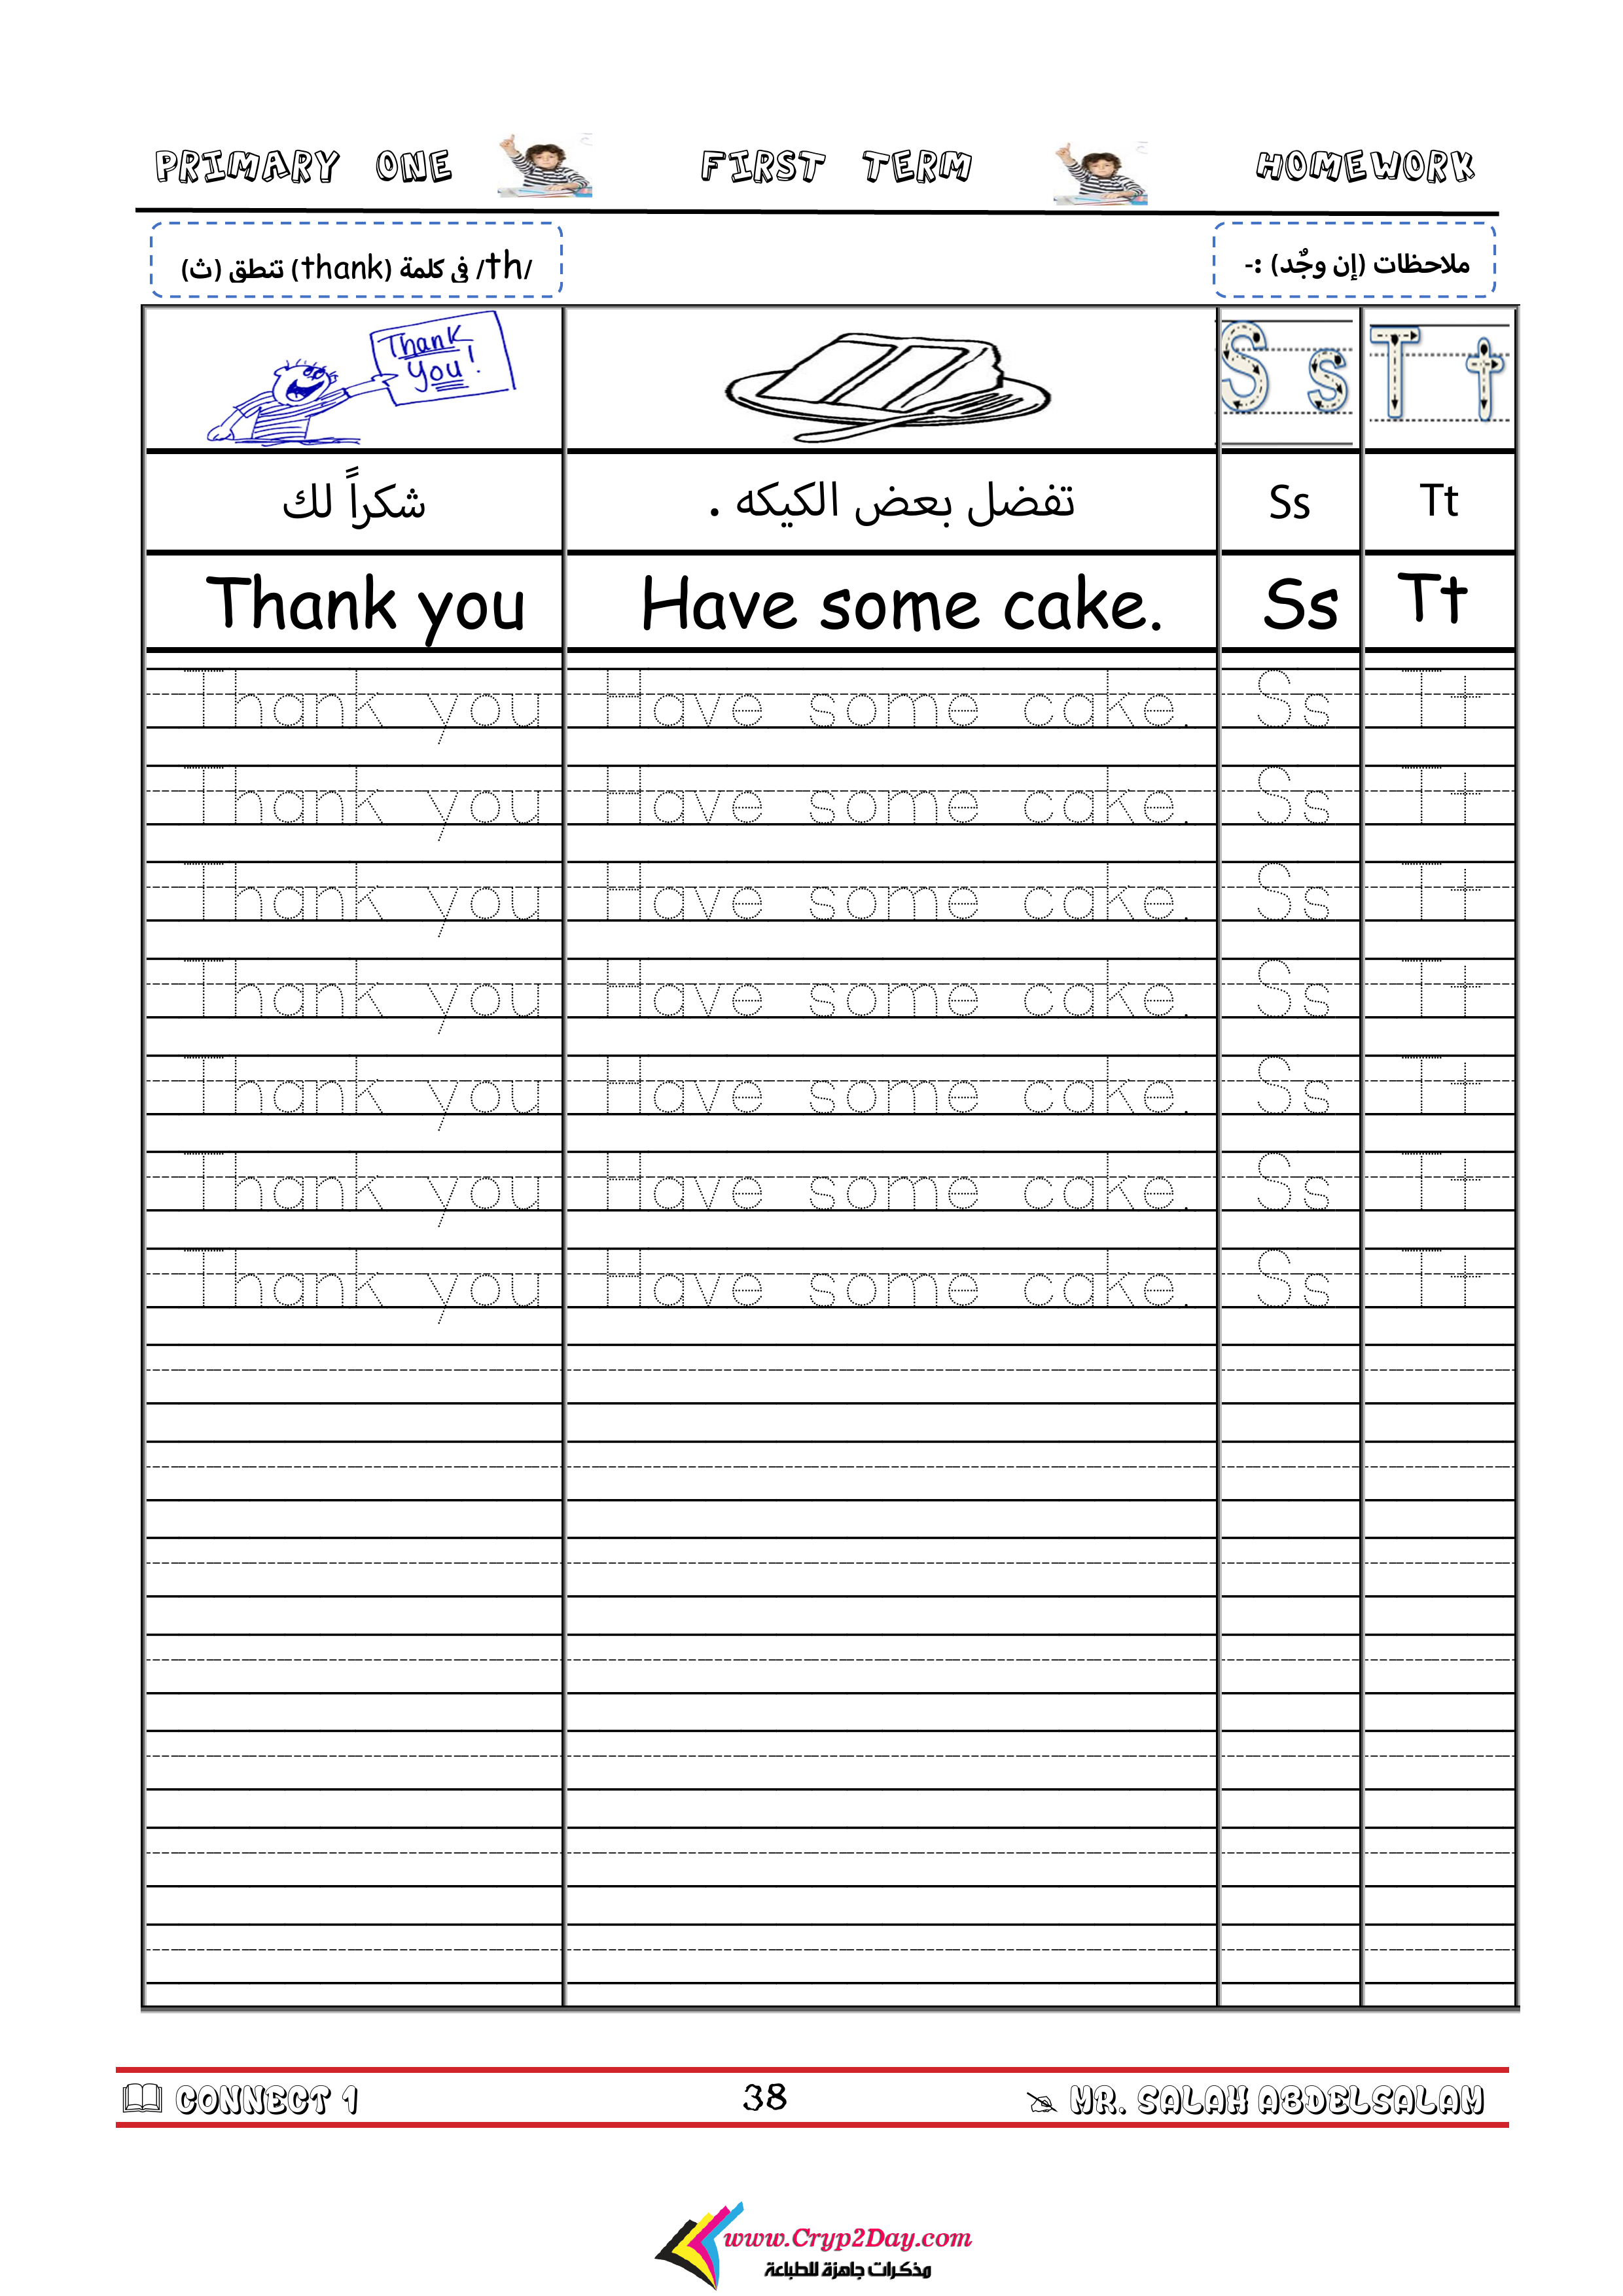 PRIMARY ONE FIRST TERM HOMEWORK
/th/ فى كلمة (thank) تنطق (ث)
ملاحظات (إن وجٌد) :-
Thank you! S s T t
شكراً لك تفضل بعض الكيكه . Ss Tt
Thank you Have some cake. Ss Tt
Thank you Have some cake. Ss Tt
Thank you Have some cake. Ss Tt
Thank you Have some cake. Ss Tt
Thank you Have some cake. Ss Tt
Thank you Have some cake. Ss Tt
Thank you Have some cake. Ss Tt
Thank you Have some cake. Ss Tt
CONNECT 1 38 MR. SALAH ABDELSALAM
www.Cryp2Day.com
مذكرات جاهزة للطباعة